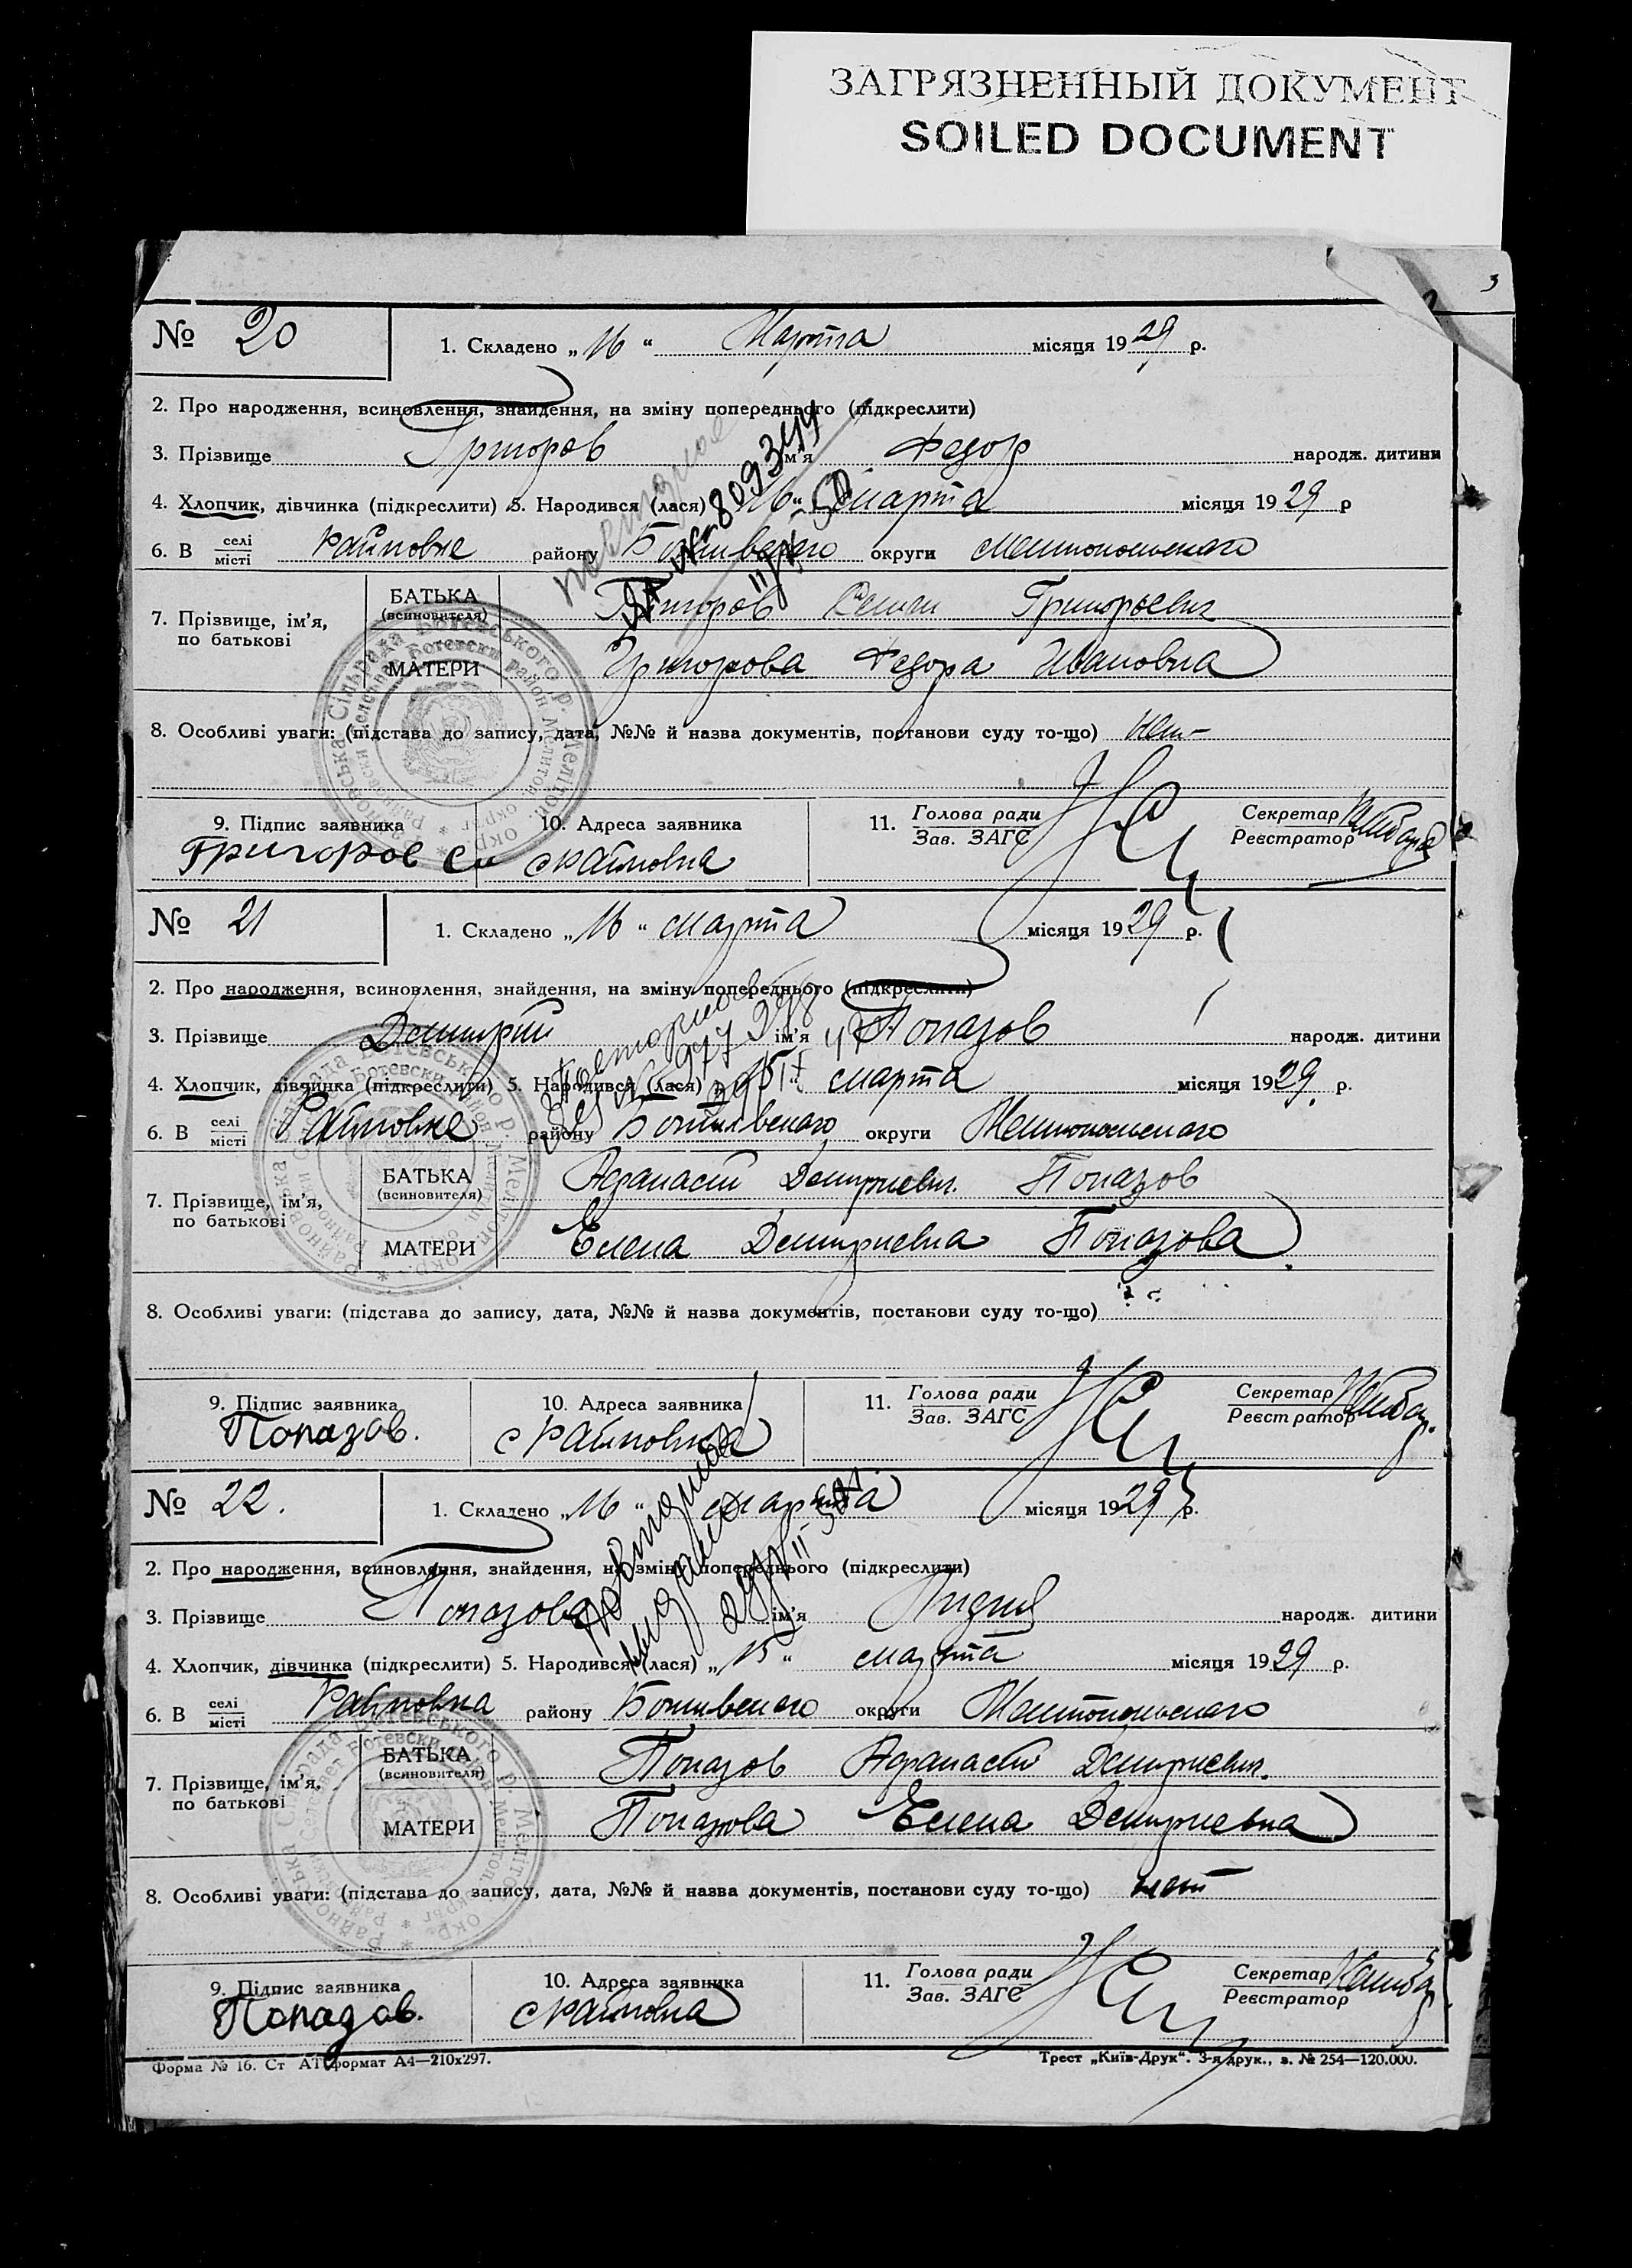 ЗАГРЯЗНЕННЫЙ ДОКУМЕНТ
SOILED DOCUMENT
3
№ 20
1. Складено „16“ Марта місяця 1929 р.
2. Про народження, всиновлення, знайдення, на зміну попереднього (підкреслити)
3. Прізвище Григоров ім'я Федор народж. дитини
4. Хлопчик, дівчинка (підкреслити) 5. Народився (лася) „16“ марта місяця 1929 р
6. В селі місті Райновке району Ботивского округи Мелитопольского
7. Прізвище, ім'я, по батькові
БАТЬКА (всиновителя) Григоров Григорьевич
МАТЕРИ Григорова Федора Ивановна
8. Особливі уваги: (підстава до запису, дата, №№ й назва документів, постанови суду то-що) нет
9. Підпис заявника
Григоров
10. Адреса заявника
с Райновка
11. Голова ради
Зав. ЗАГС
Секретар
Реєстратор
№ 21
1. Складено „16“ марта місяця 1929 р.
2. Про народження, всиновлення, знайдення, на зміну попереднього (підкреслити)
3. Прізвище Дмитрий ім'я Попазов народж. дитини
4. Хлопчик, дівчинка (підкреслити) 5. Народився (лася) марта місяця 1929 р.
6. В селі місті Райновке району Ботивского округи Мелитопольского
7. Прізвище, ім'я, по батькові
БАТЬКА (всиновителя) Афанасий Дмитриевич Попазов
МАТЕРИ Елена Дмитриевна Попазова
8. Особливі уваги: (підстава до запису, дата, №№ й назва документів, постанови суду то-що)
9. Підпис заявника
Попазов.
10. Адреса заявника
с Райновка
11. Голова ради
Зав. ЗАГС
Секретар
Реєстратор
№ 22.
1. Складено „16“ марта місяця 1929 р.
2. Про народження, всиновлення, знайдення, на зміну попереднього (підкреслити)
3. Прізвище Попазова ім'я Лидия народж. дитини
4. Хлопчик, дівчинка (підкреслити) 5. Народився (лася) „15“ марта місяця 1929 р.
6. В селі місті Райновка району Ботивского округи Мелитопольского
7. Прізвище, ім'я, по батькові
БАТЬКА (всиновителя) Попазов Афанасий Дмитриевич.
МАТЕРИ Попазова Елена Дмитриевна
8. Особливі уваги: (підстава до запису, дата, №№ й назва документів, постанови суду то-що) нет
9. Підпис заявника
Попазов.
10. Адреса заявника
с Райновка
11. Голова ради
Зав. ЗАГС
Секретар
Реєстратор
Форма № 16. Ст АТ формат А4—210x297.
Трест „Київ-Друк“. 3-я друк., з. № 254—120.000.